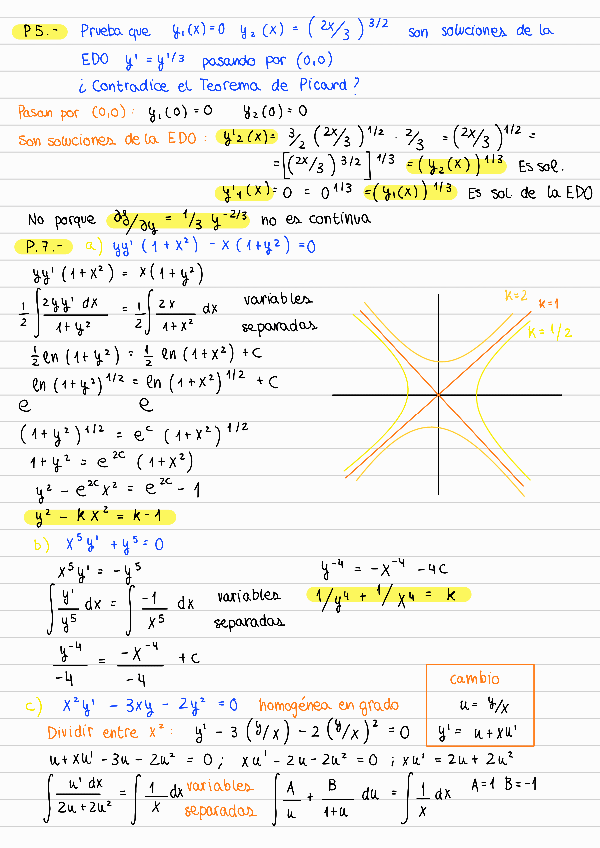 P5.- Prueba que y₁(x)=0 y₂(x) = (2x/3)^3/2 son soluciones de la
EDO y' = y^1/3 pasando por (0,0)
¿Contradice el Teorema de Picard?
Pasan por (0,0): y₁(0)=0 y₂(0)=0
Son soluciones de la EDO: y'₂(x)= 3/2 (2x/3)^1/2 · 2/3 = (2x/3)^1/2 =
= [(2x/3)^3/2]^1/3 = (y₂(x))^1/3 Es sol.
y'₁(x)= 0 = 0^1/3 = (y₁(x))^1/3 Es sol de la EDO
No porque ∂g/∂y = 1/3 y^-2/3 no es contínua
P.7.- a) yy'(1+x²) - x(1+y²) = 0
yy'(1+x²) = x(1+y²)
1/2 ∫ 2yy' dx / 1+y² = 1/2 ∫ 2x / 1+x² dx variables
separadas
1/2 ln(1+y²) = 1/2 ln(1+x²) + C
ln(1+y²)^1/2 = ln(1+x²)^1/2 + C
e e
(1+y²)^1/2 = e^c (1+x²)^1/2
1+y² = e^2c (1+x²)
y² - e^2c x² = e^2c - 1
y² - kx² = k-1
k=2
k=1
k=1/2
b) x⁵y' + y⁵ = 0
x⁵y' = -y⁵
∫ y'/y⁵ dx = ∫ -1/x⁵ dx variables
separadas
y^-4 / -4 = -x^-4 / -4 + C
y^-4 = -x^-4 - 4C
1/y⁴ + 1/x⁴ = k
c) x²y' - 3xy - 2y² = 0 homogénea en grado
Dividir entre x²: y' - 3(y/x) - 2(y/x)² = 0
cambio
u = y/x
y' = u+xu'
u+xu' - 3u - 2u² = 0; xu' - 2u - 2u² = 0; xu' = 2u + 2u²
∫ u' dx / 2u+2u² = ∫ 1/x dx variables separadas ∫ A/u + B/1+u du = ∫ 1/x dx A=1 B=-1